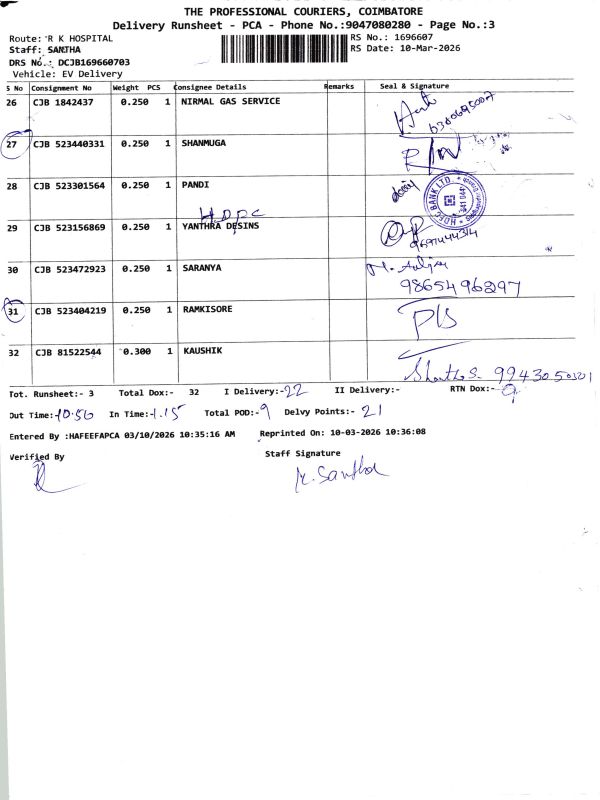 THE PROFESSIONAL COURIERS, COIMBATORE
Delivery Runsheet - PCA - Phone No.:9047080280 - Page No.:3
Route: R K HOSPITAL
RS No.: 1696607
Staff: SANTHA
RS Date: 10-Mar-2026
DRS No.: DCJB169660703
Vehicle: EV Delivery
S No Consignment No Weight PCS Consignee Details Remarks Seal & Signature
26 CJB 1842437 0.250 1 NIRMAL GAS SERVICE
27 CJB 523440331 0.250 1 SHANMUGA
28 CJB 523301564 0.250 1 PANDI
HDFC BANK LTD.
29 CJB 523156869 0.250 1 YANTHRA DESINS
30 CJB 523472923 0.250 1 SARANYA
9865496297
31 CJB 523404219 0.250 1 RAMKISORE
32 CJB 81522544 0.300 1 KAUSHIK
9943050301
Tot. Runsheet:- 3 Total Dox:- 32 I Delivery:-22 II Delivery:- RTN Dox:-9
Out Time:-10.50 In Time:-1.15 Total POD:-9 Delvy Points:-21
Entered By :HAFEEFAPCA 03/10/2026 10:35:16 AM Reprinted On: 10-03-2026 10:36:08
Verified By
Staff Signature
K. Santha